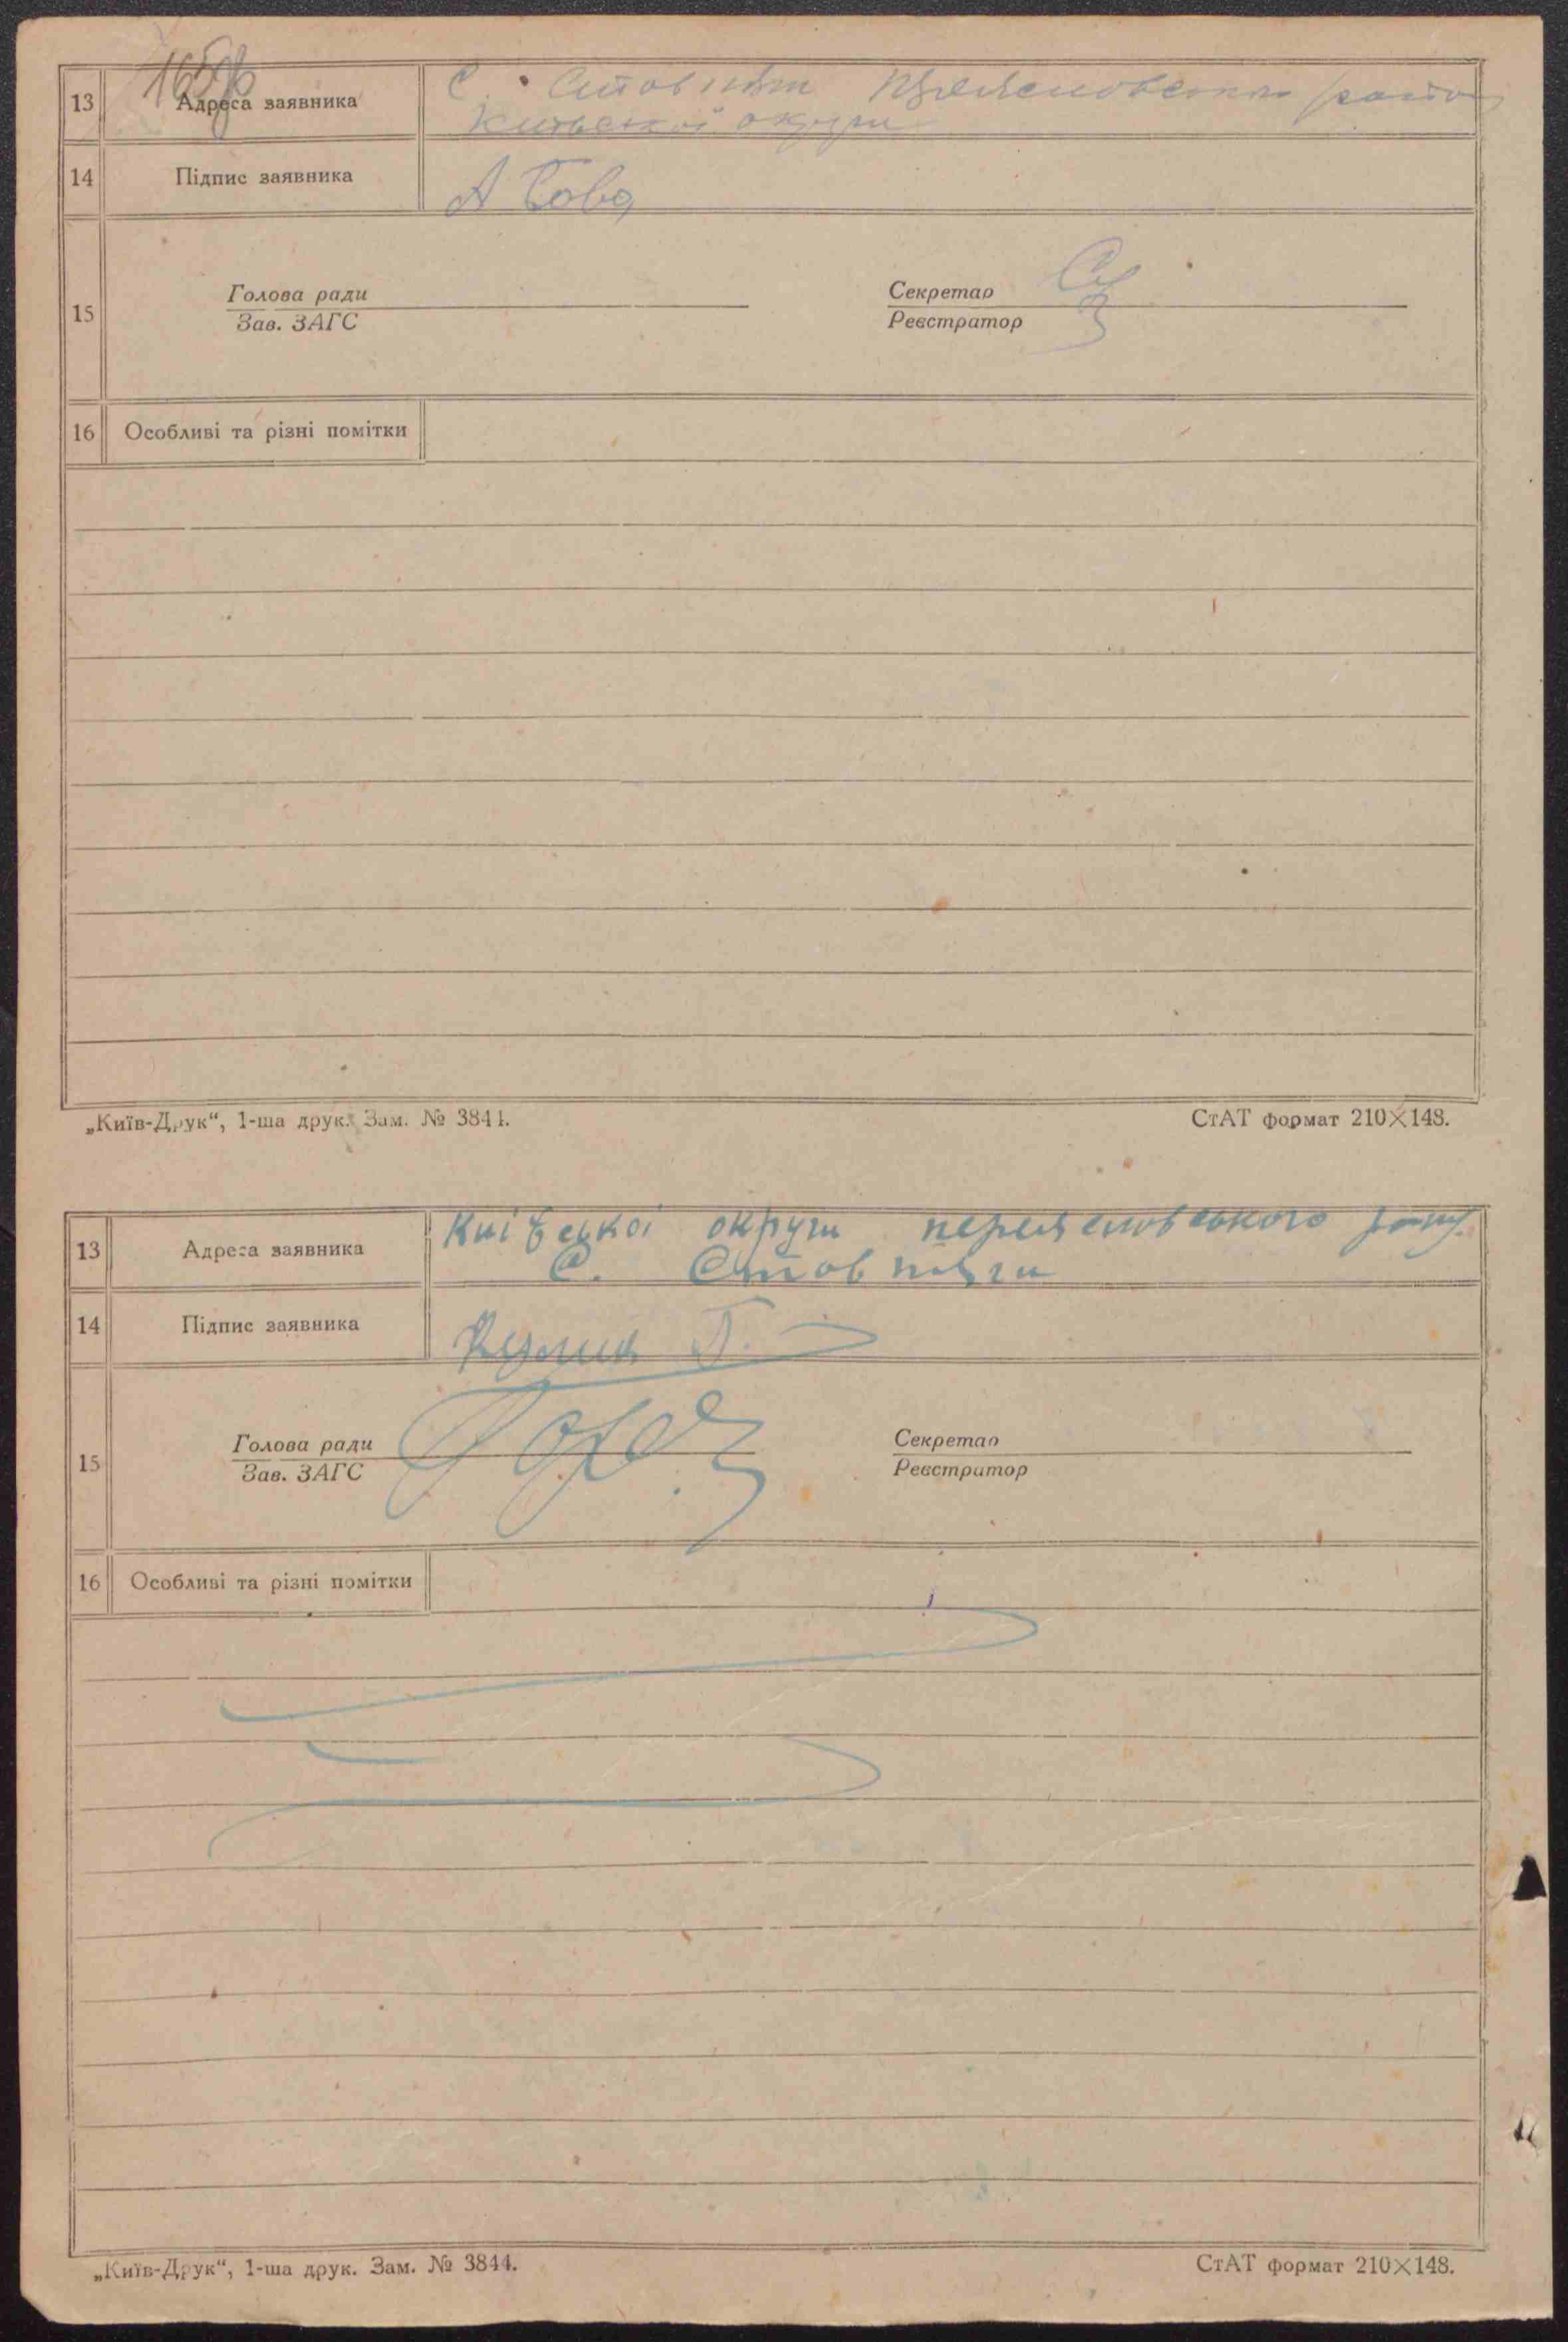 13 Адреса заявника
С. Стовпяги Переяславського району
Київської округи
14 Підпис заявника
А Бова
15 Голова ради Секретар
Зав. ЗАГС Реєстратор
16 Особливі та різні помітки
„Київ-Друк“, 1-ша друк. Зам. № 3844. СтАТ формат 210×148.
13 Адреса заявника Київської округи
С. Стовпяги
14 Підпис заявника
15 Голова ради Секретар
Зав. ЗАГС Реєстратор
16 Особливі та різні помітки
„Київ-Друк“, 1-ша друк. Зам. № 3844. СтАТ формат 210×148.